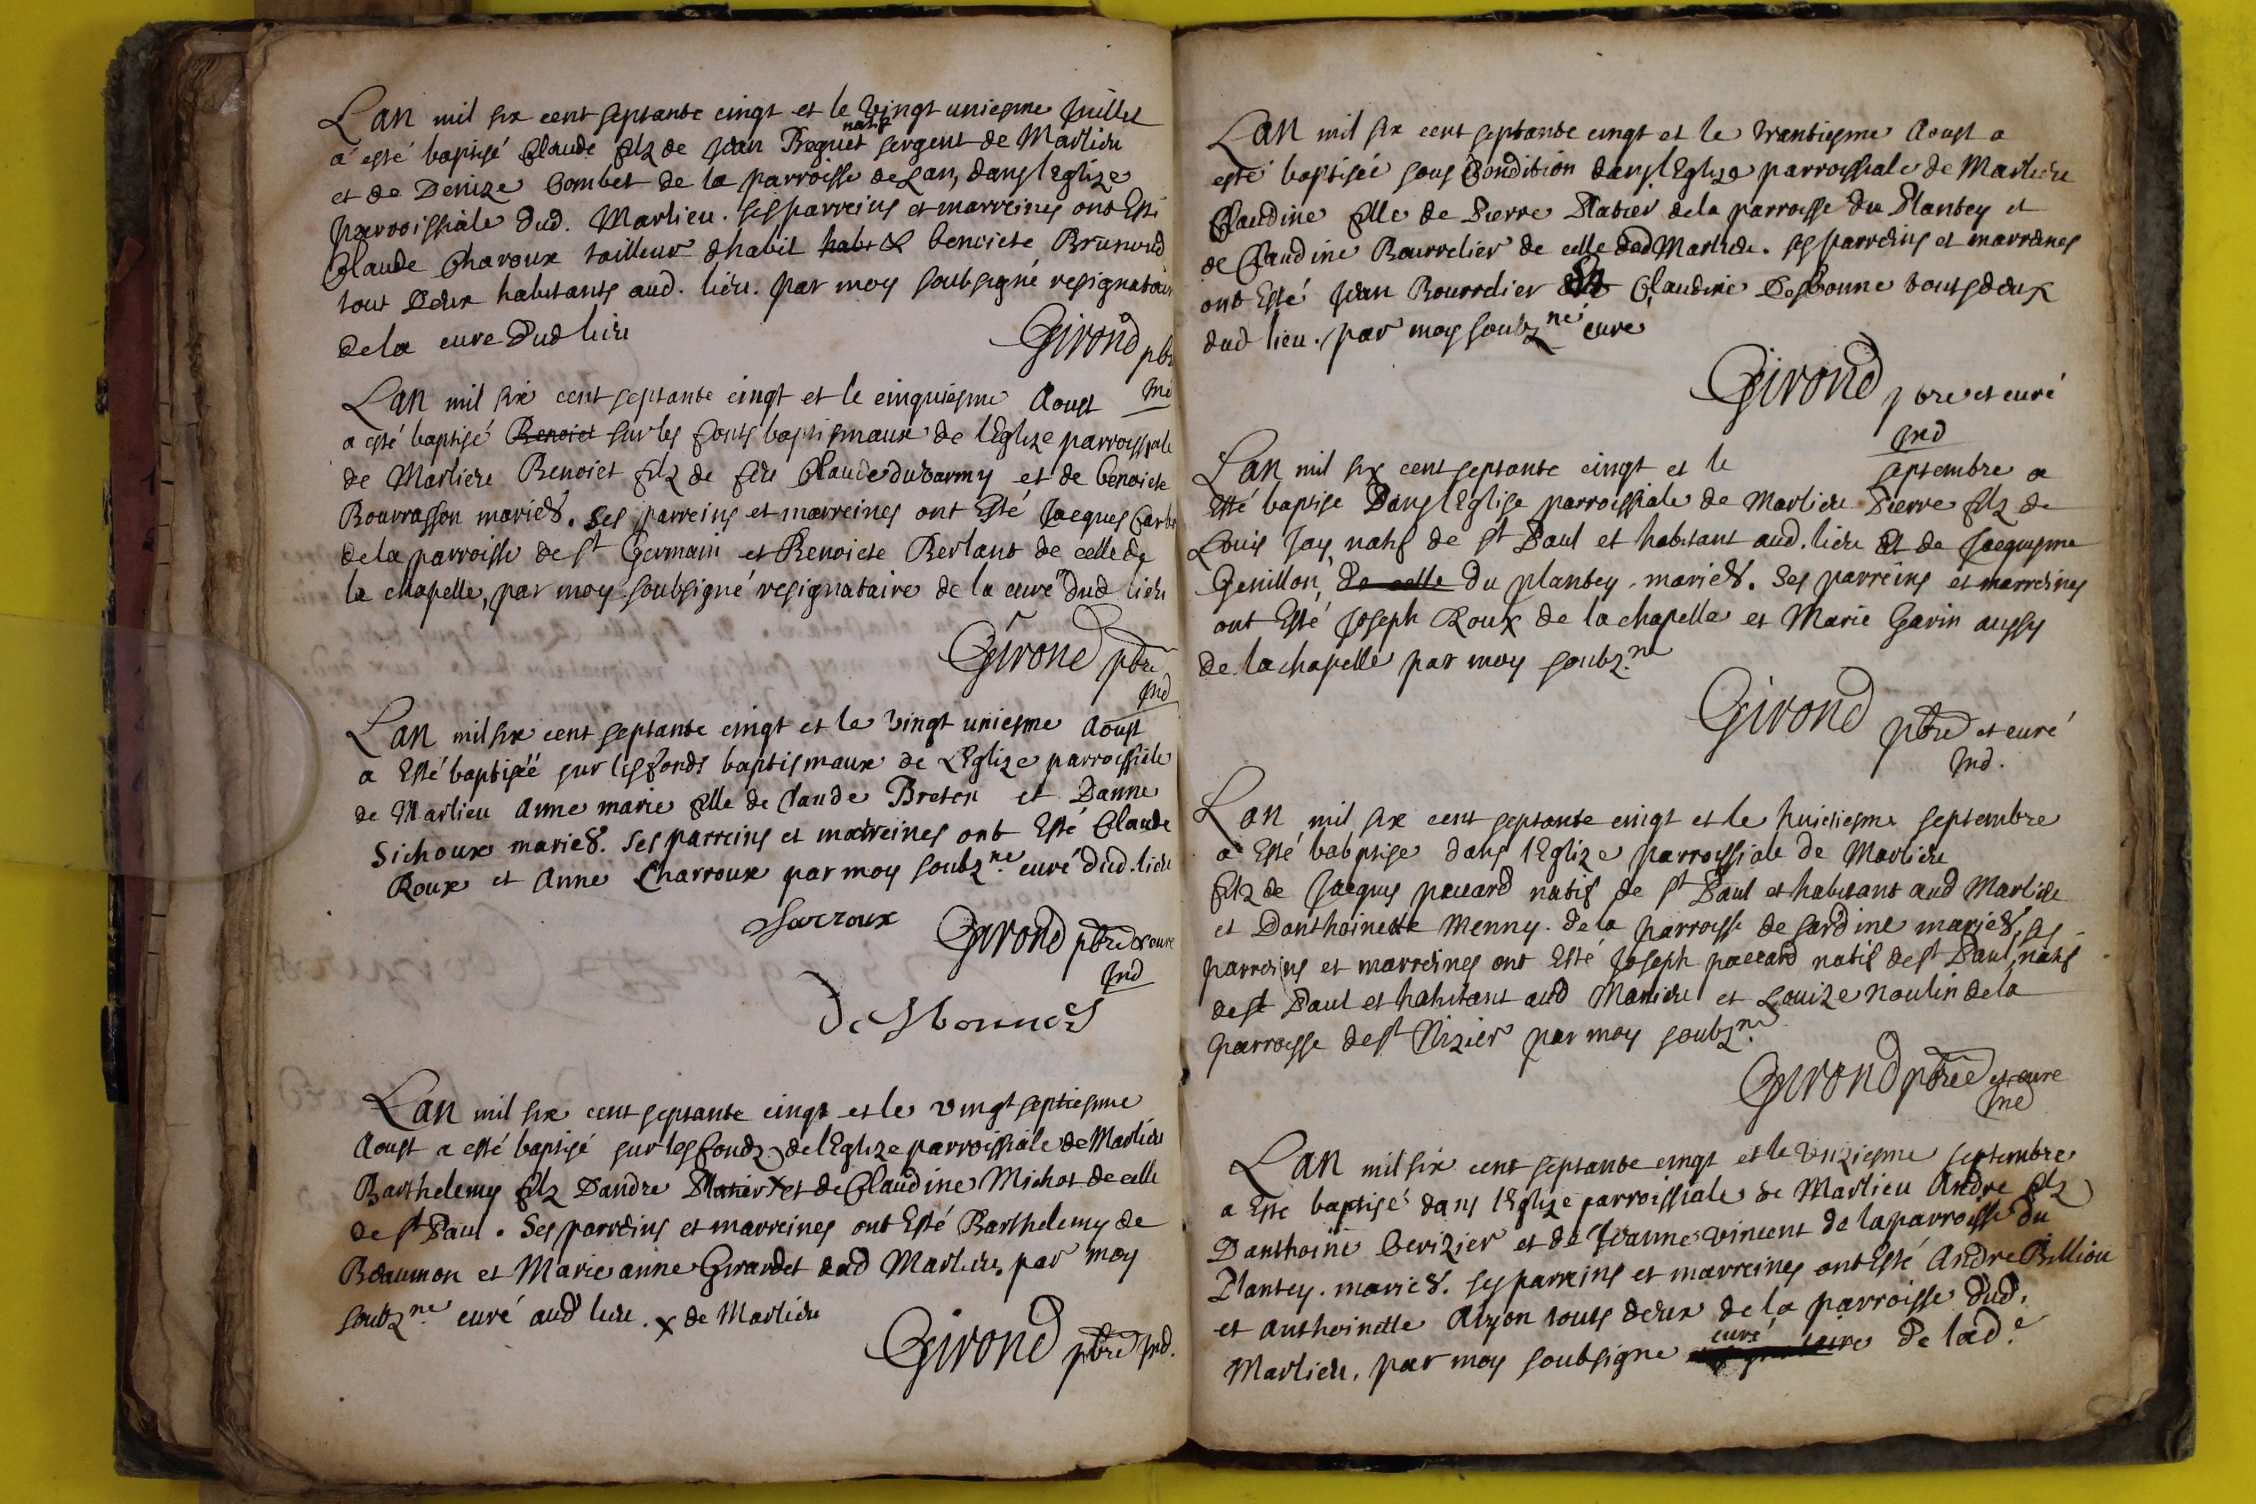 Lan mil six cent septante cinqt et le vingt uniesme Juillet
a esté baptisé Claude filz de Jean Bequet natif sergent de Marlieu
et de Denize Combet de la parroisse de Lan, dans lEglize
parroissiale dud. Marlieu. ses parreins et marreines ont Esté
Claude Charoux tailleur dhabit habit & benoiete Brunond
tout Deux habitants aud. lieu. par moy soubsigné resignataire
de la cure Dud lieu
Girond pbr
Ind
Lan mil six cent septante cinqt et le cinquiesme Aoust
a esté baptisé Benoiet sur les fonts baptismaux de lEglize parroissiale
de Marlieu Benoiet filz de feu Claude duvarmy et de benoiete
Bourrasson mariés. Ses parreins et marreines ont Esté Jacques
de la parroisse de st Germain et Benoiete Berlant de celle de
la chapelle, par moy soubsigné resignataire de la cure dud lieu
Girond pbre
Ind
Lan mil six cent septante cinqt et le vingt uniesme Aoust
a Esté baptisée sur les fonds baptismaux de LEglize parroissiale
de Marlieu Anne marie fille de Claude Breton et Danne
Sichoux mariés. Ses parreins et marreines ont Esté Claude
Roux et Anne Charroux par moy soubzne. curé dud. lieu
Charroux
Girond pbre & cure
Ind
Desbonnes
Lan mil six cent septante cinqt et le vingt septiesme
Aoust a esté baptisé sur les fondz de lEglize parroissiale de Marlieu
Barthelemy filz Dandre Platier x et de Claudine Michot de celle
de st Paul. Ses parreins et marreines ont Esté Barthelemy de
Beaumon et Marie anne Girardet dud Marlieu, par moy
soubzne. curé aud lieu. x de Marlieu
Girond pbre Ind.
Lan mil six cent septante cinqt et le trantiesme Aoust a
esté baptisée sous Condition dans lEglize parroissiale de Marlieu
Claudine fille de Pierre Platier de la parroisse du Plantey et
de Claudine Bourrelier de celle dud Marlieu. ses parreins et marreines
ont Esté Jean Bourrelier Claudine Desbonne touts deux
dud lieu. par moy soubzné curé
Girond pbre et curé
Ind
Lan mil six cent septante cinqt et le septembre a
Esté baptise Dans lEglise parroissiale de Marlieu Pierre filz de
Louis Jay natif de st Paul et habitant aud. lieu Et de Jacquyme
Genillon, de celle du plantey. mariés. Ses parreins et marreines
ont Esté Joseph Roux de la chapelle et Marie Gavin aussy
de la chapelle par moy soubz.ne
Girond pbre et curé
Ind.
Lan mil six cent septante cinqt et le huictiesme septembre
a Esté babptise dans lEglize parroissiale de Marlieu
filz de Jacques paccard natif de st Paul et habitant aud Marlieu
et Danthoinette Menny. de la parroisse de sardine mariés, ses
parreins et marreines ont Esté Joseph paccard natif de st Paul, natif
de st Paul et habitant aud Marlieu et Louize noulin de la
parroisse de st Nizier par moy soubz.ne
Girond pbre et cure
Ind
Lan mil six cent septante cinqt et le unziesme septembre
a Esté baptisé dans lEglize parroissiale de Marlieu Andre filz
Danthoine Cerizier et de Jeanne vincent de la parroisse du
Plantey. mariés. ses parreins et marreines ont Esté Andre Billiou
et anthoinette Alyon touts deux de la parroisse dud.
Marlieu. par moy soubsigne curé de lad.e